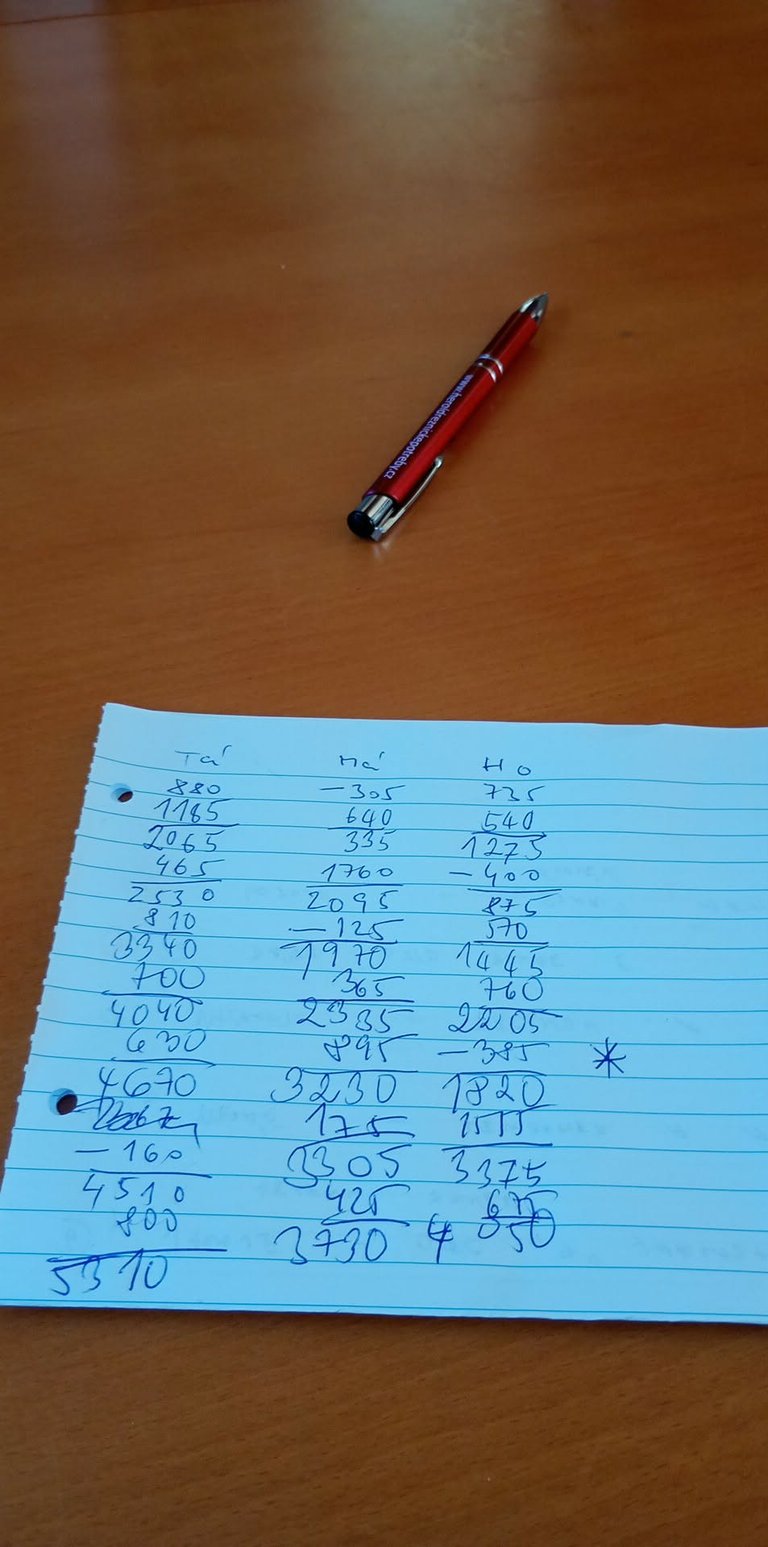 www.heroldreznickepotreby.cz
Tá Má Ho
880 -305 735
1185 640 540
2065 335 1275
465 1760 -400
2530 2095 875
810 -125 570
3340 1970 1445
700 365 760
4040 2335 2205
630 895 -385 *
4670 3230 1820
175 1555
-160 3305 3375
4510 425 675
800 3730 4050
5310